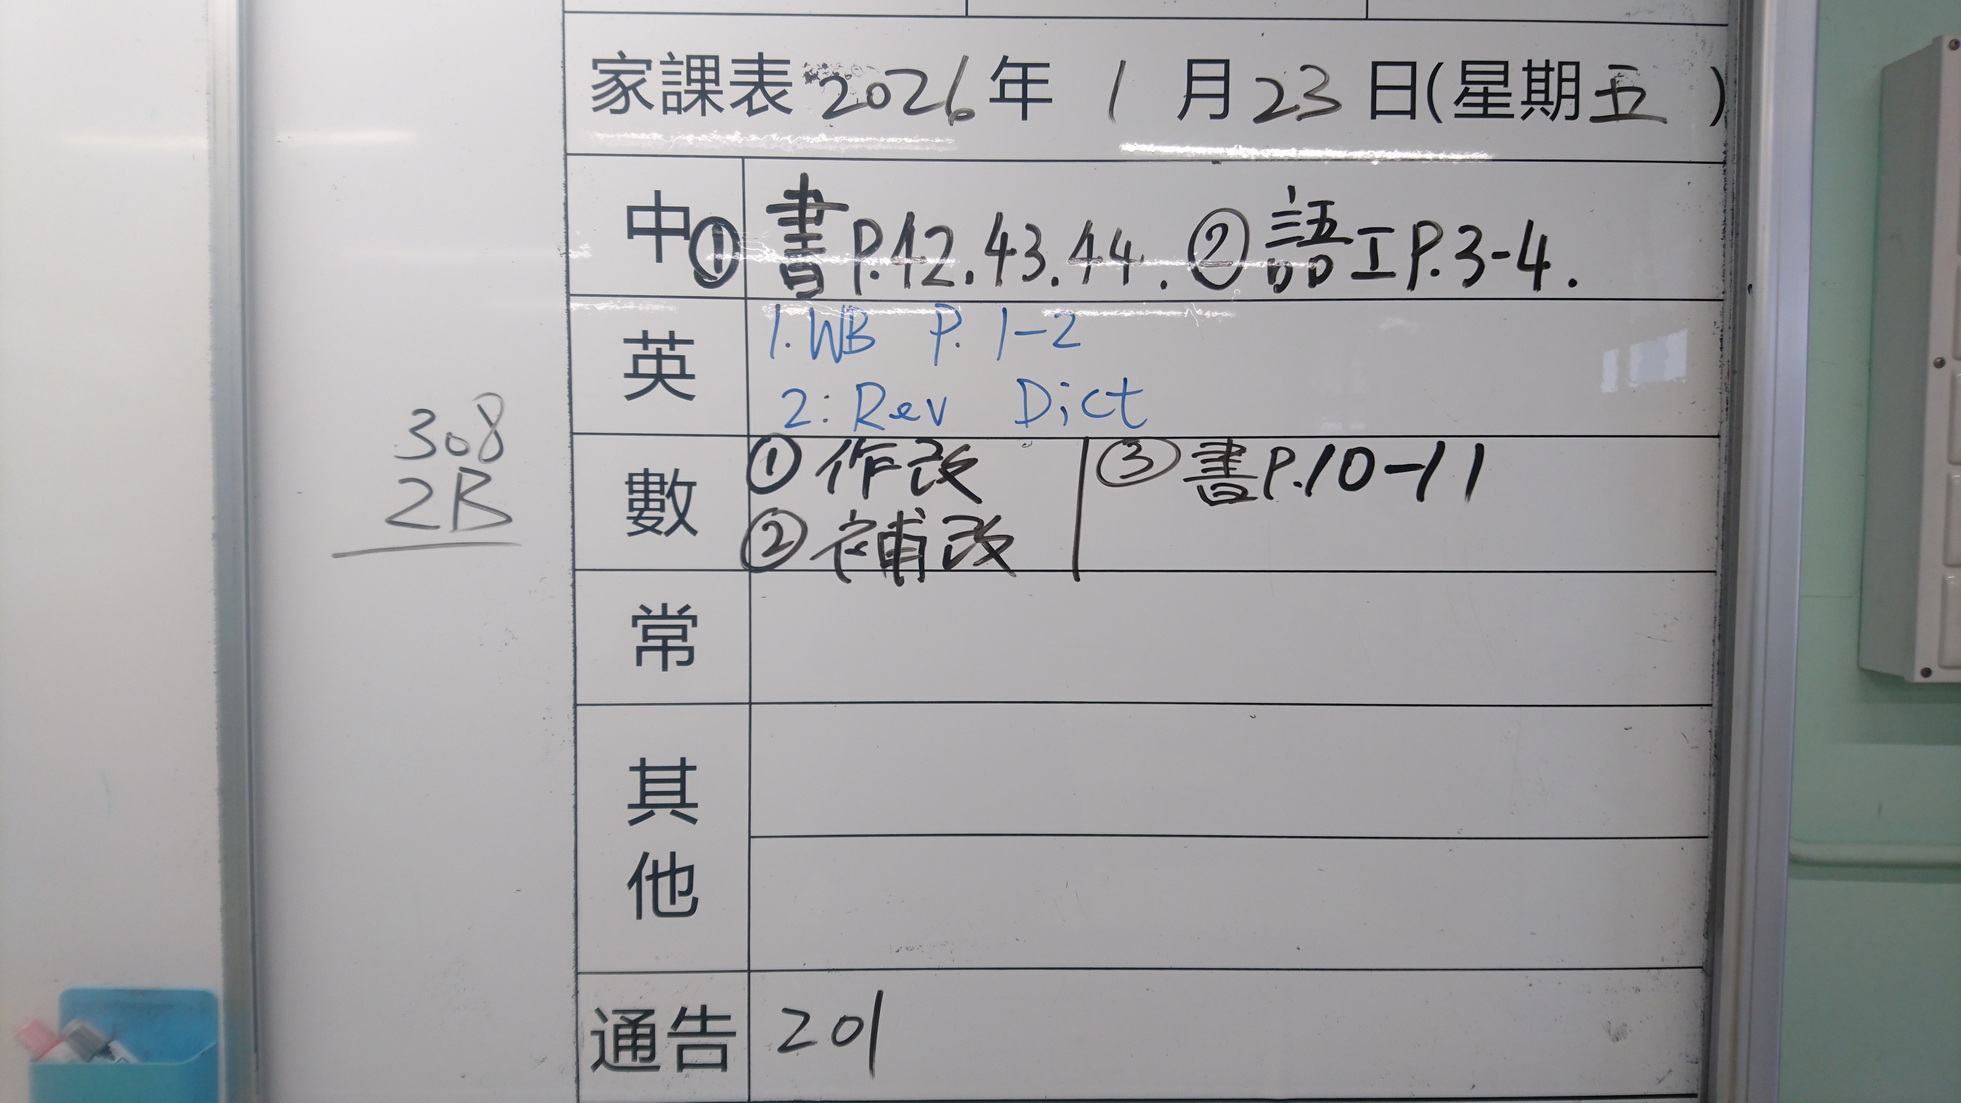 家課表 2026年 1月23日(星期五)
中 ① 書P.42.43.44. ② 語工P.3-4.
英 1. WB P. 1-2
2: Rev Dict
數 ① 作改 ③ 書P.10-11
② 補改
308
2B
常
其他
通告 201